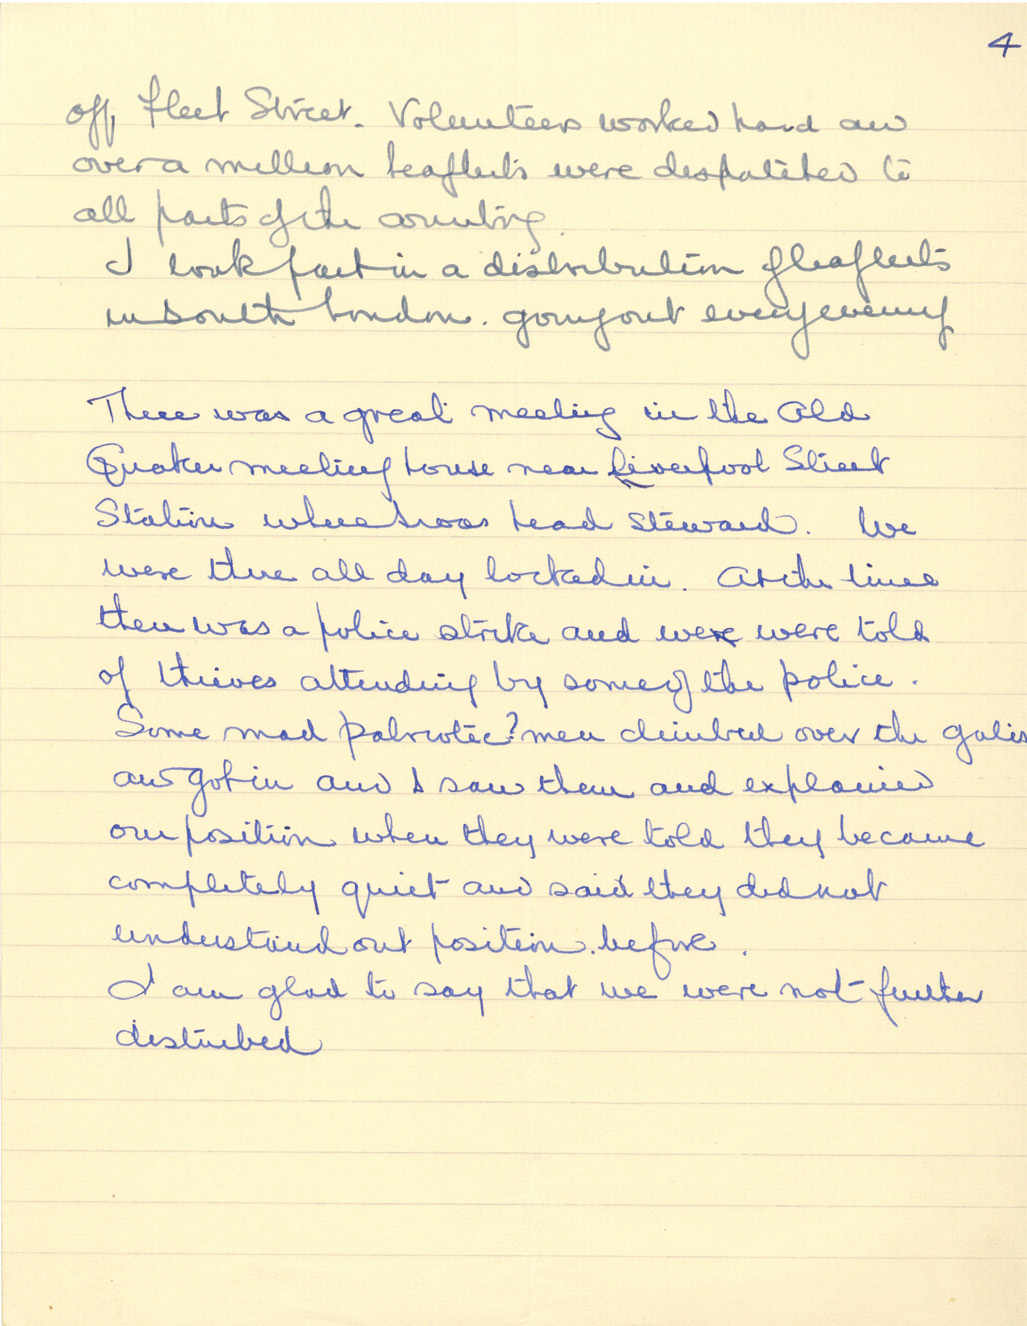 4
off Fleet Street. Volunteers worked hard and
over a million leaflets were despatched to
all parts of the country.
I took part in a distribution of leaflets
in South London. going out every evening
There was a great meeting in the Old
Quaker meeting house near Liverpool Street
Station where I was head steward. We
were there all day locked in. At the time
there was a police strike and we were told
of thieves attending by some of the police.
Some mad patriotic? men climbed over the gates
and got in and I saw them and explained
our position when they were told they became
completely quiet and said they did not
understand out position. before.
I am glad to say that we were not further
disturbed